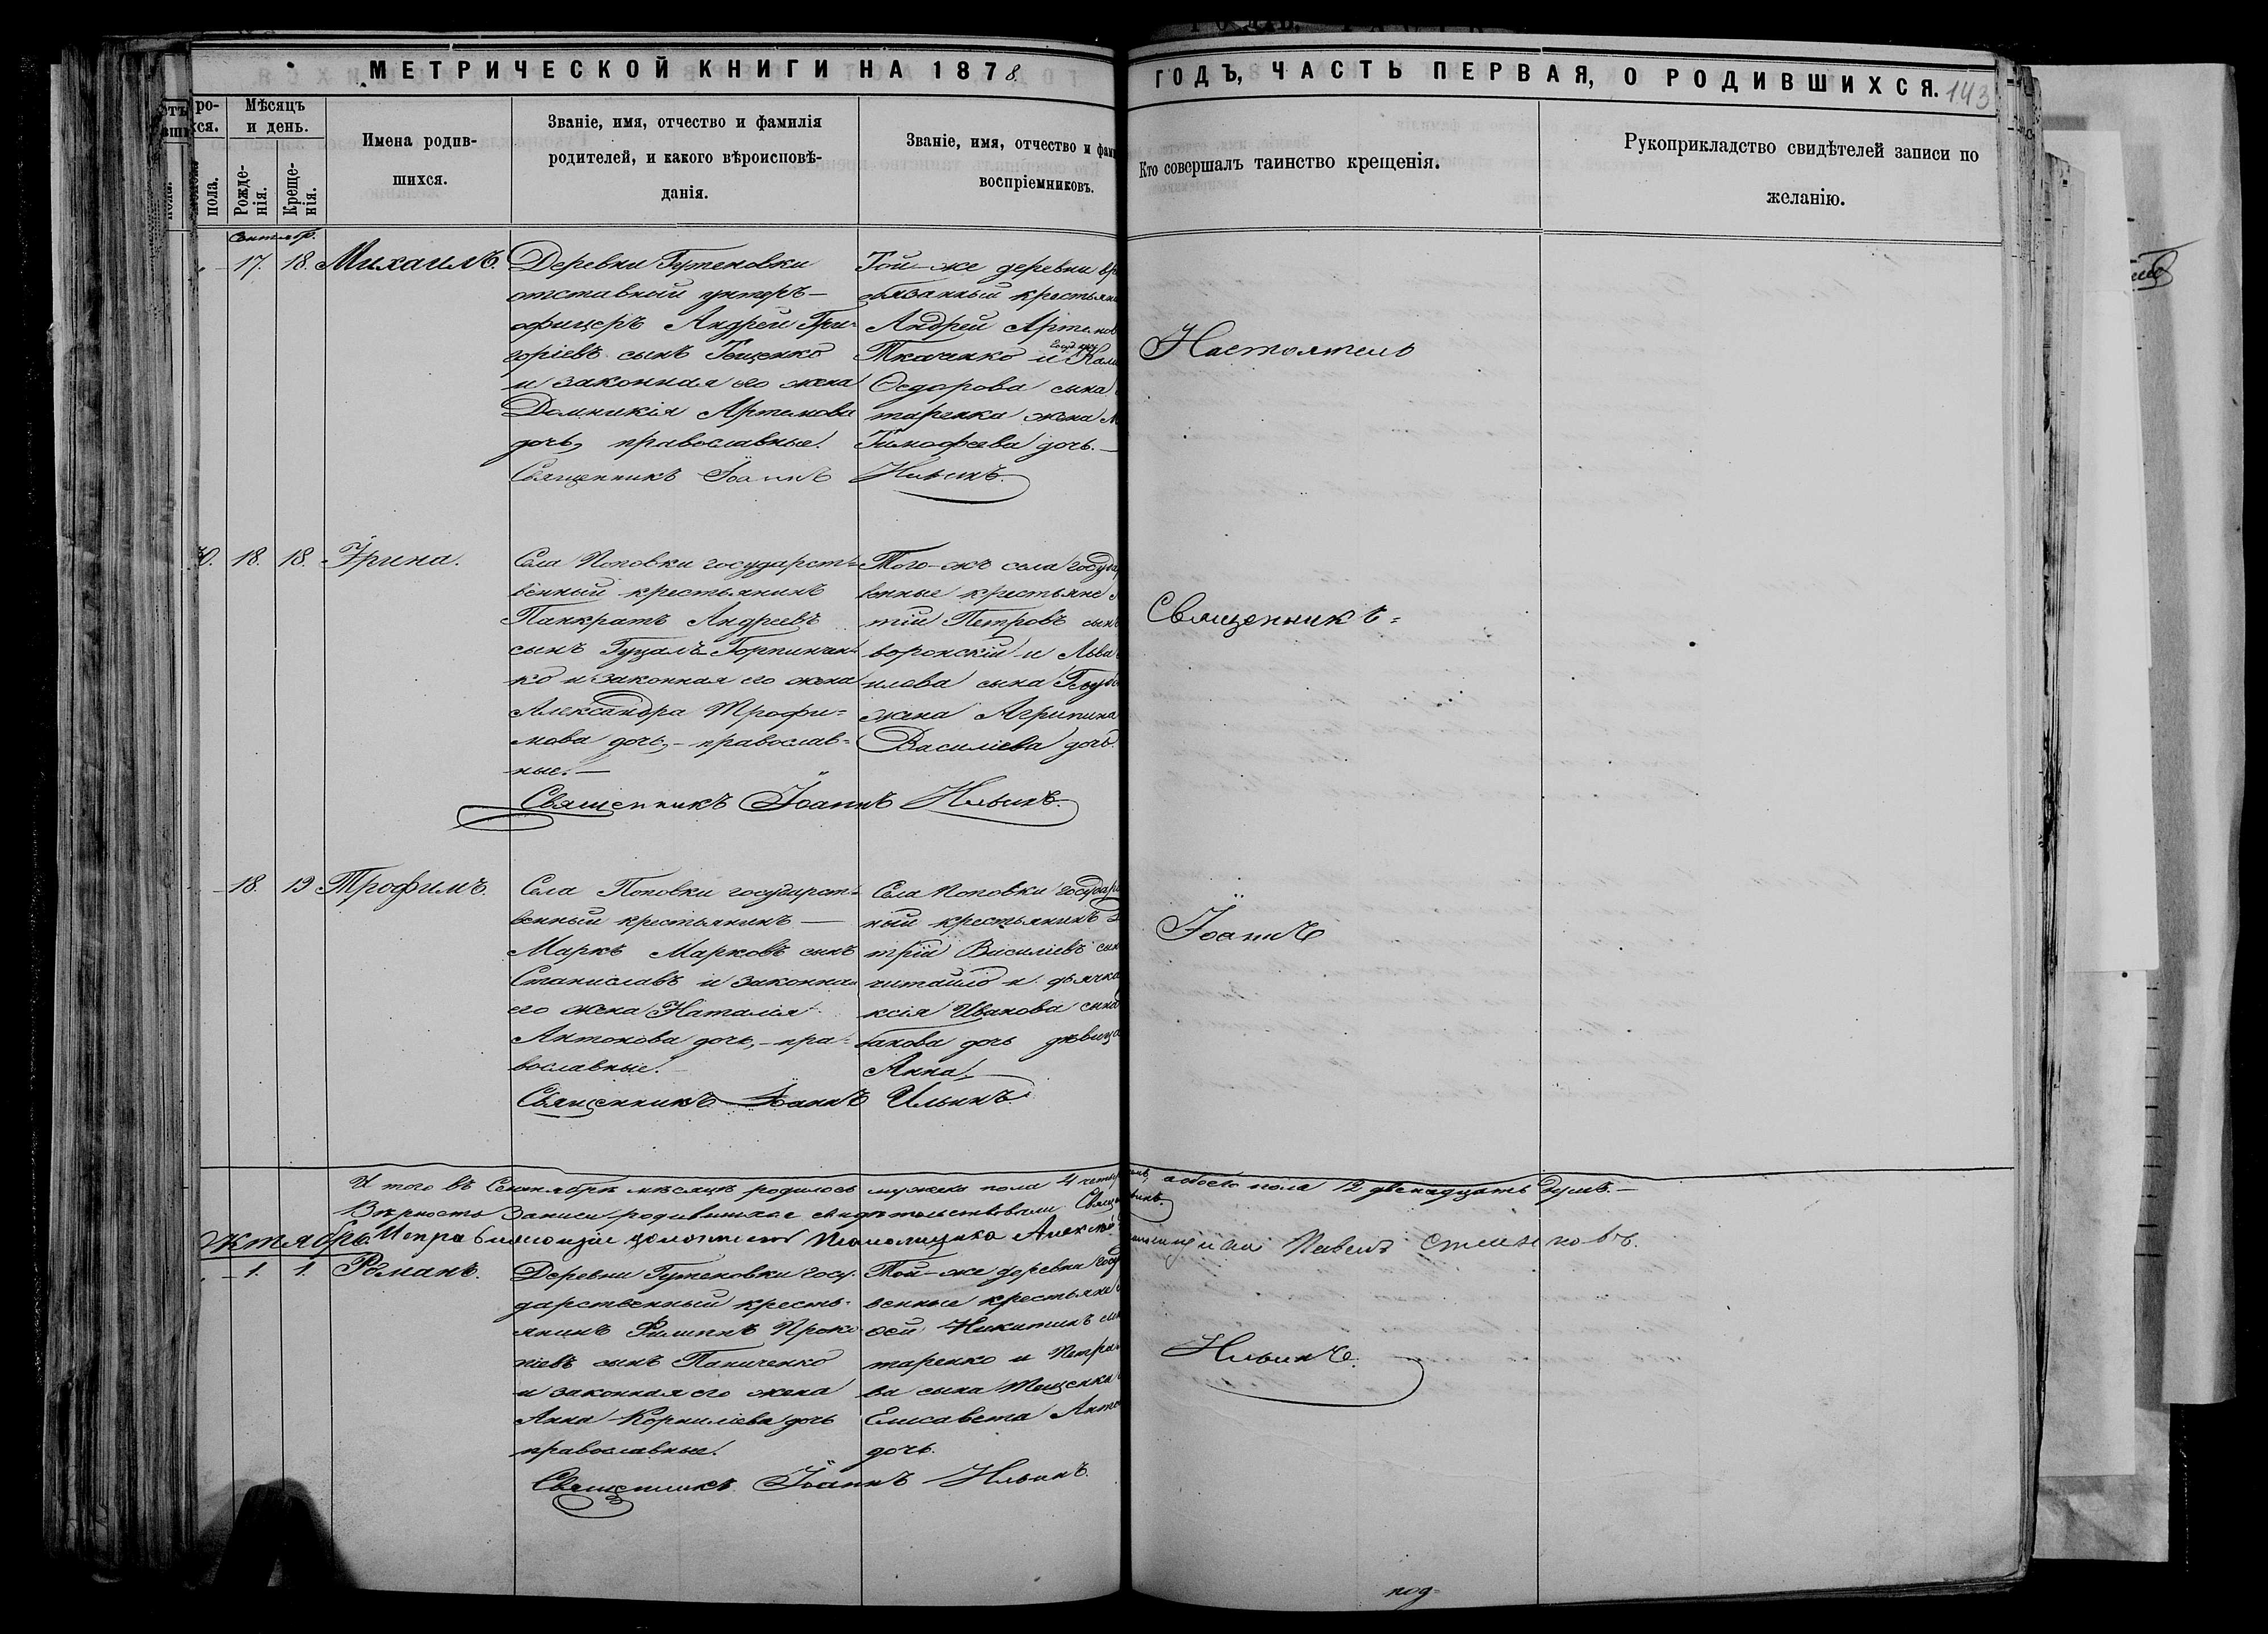 МЕТРИЧЕСКОЙ КНИГИ НА 1878.
ГОДЪ, ЧАСТЬ ПЕРВАЯ, О РОДИВШИХСЯ. 143
Мѣсяцъ и день.
Рожде-
нія.
Креще-
нія.
пола.
Имена родив-
шихся.
Званіе, имя, отчество и фамилія
родителей, и какого вѣроисповѣ-
данія.
Званіе, имя, отчество и фам
воспріемниковъ.
Кто совершалъ таинство крещенія.
Рукоприкладство свидѣтелей записи по
желанію.
Сентябр.
17. 18. Михаилъ.
Деревни Гутеновки
отставный унтеръ-
офицеръ Андрей Гри-
горіевъ сынъ
и законная его жена
Домникія Артемова
дочь, православные.
Священникъ Іоаннъ Ильинъ.
Той-же деревни вр
обязанный крестьян
Андрей Артемов
Ткаченко и
Ѳедорова сына
таренка жена М
Тимофеева дочь.
Настоятель
18. 18. Ірина.
Села Поповки государст-
венный крестьянинъ
Панкратъ Андреевъ
сынъ Гуцалъ Горпинчен-
ко и законная его жена
Александра Трофи-
мова дочь, - православ-
ные. -
Священникъ Іоаннъ Ильинъ.
Того-жъ села государ
венные крестьяне
тій Петровъ сынъ
воронскій и Льва
илова сына
жена Агрипина
Василіева дочь.
Священникъ
18. 19 Трофимъ.
Села Поповки государст-
венный крестьянинъ
Маркъ Марковъ сынъ
Станиславъ и законная
его жена Наталія
Антонова дочь, - пра-
вославные.
Священникъ Іоаннъ Ильинъ.
Села Поповки государ
ный крестьянинъ
трій Василіевъ сын
читайло и дьячка
ксія Иванова сына
бакова дочь дѣвица
Анна.
Іоаннъ
Итого въ Сентябрѣ мѣсяцѣ родилось мужеска пола 4 четы а обоего пола 12 двенадцать душъ. -
Вѣрность записи родившихся свидѣтельствовали Свящ
Октябрь. Исправляющій должность Псаломщика Алексѣй
Павелъ
1. 1. Романъ.
Деревни Гутеновки госу-
дарственный кресть-
янинъ Филиппъ Проко-
піевъ сынъ Паниченко
и законная его жена
Анна Корниліева дочь
православные.
Священникъ Іоаннъ Ильинъ.
Той-же деревни госу
венные крестьяне
Никитинъ сын
таренко и Петра
ва сына Тещенка
Елисавета Анто
дочь.
Ильинъ.
под-